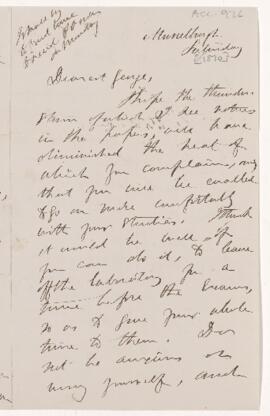 Acc. 926
Musselburgh.
Saturday
[1870]
on Monday
Dearest George,
I hope the thunder-
storm of which I see notices
in the papers, will have
diminished the heat of
which you complain, so
that you will be enabled
to go on more comfortably
with your studies. I think
it would be well if
you can do it, to leave
off the laboratory for a
time before the Exams,
so as to give your whole
time to them. Do
not be anxious or
worry yourself, and